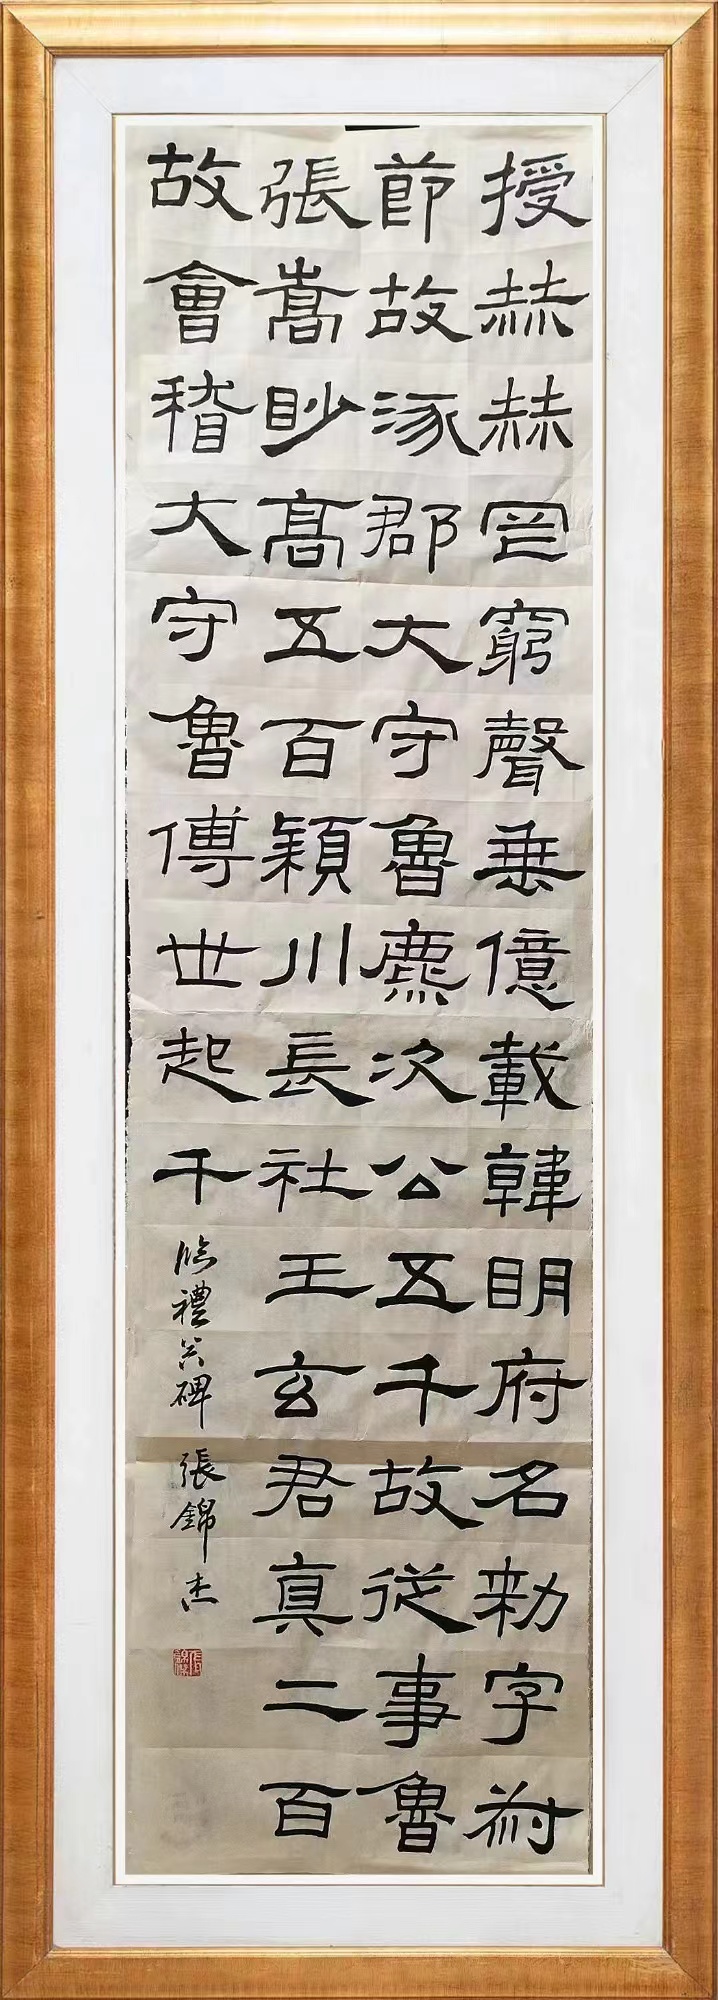 授赫赫罔窮聲垂億載韓明府名勑字叔
節故涿郡大守魯麃次公五千故從事魯
張嵩眇高五百潁川長社王玄君真二百
故會稽大守魯傅世起千
臨禮器碑 張錦杰